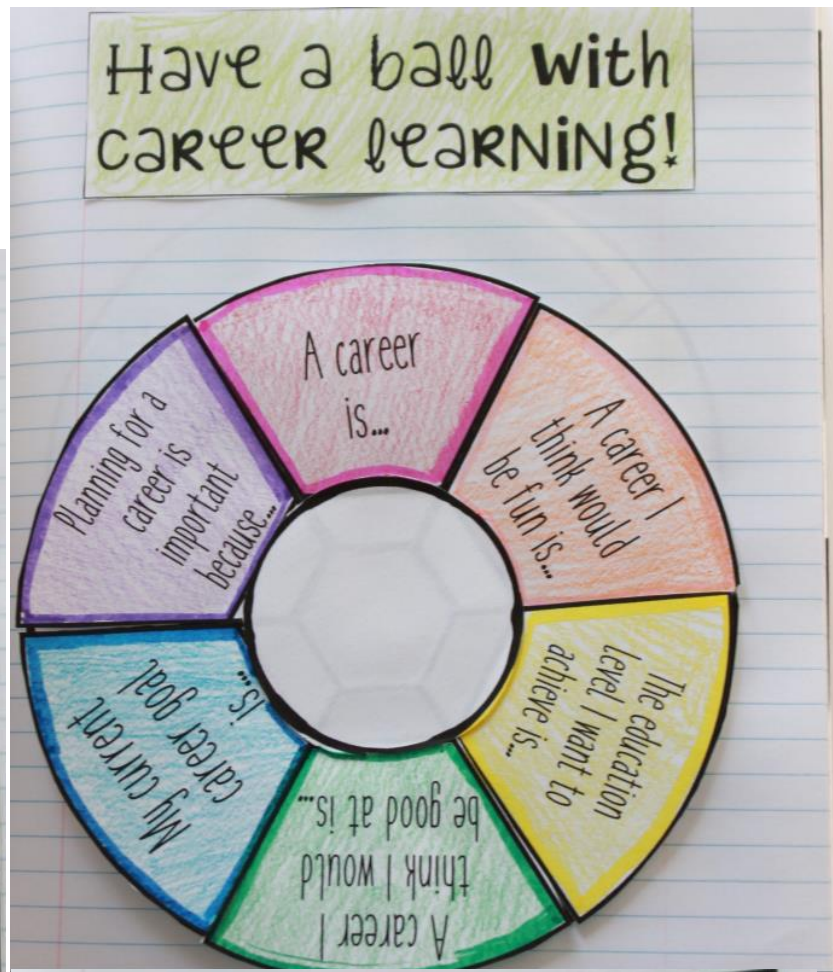 Have a ball with
career learning!
A career
is...
A career I
think would
be fun is...
The education
level I want to
achieve is...
A career I
think I would
be good at is...
My current
career goal
is...
Planning for a
career is
important
because...